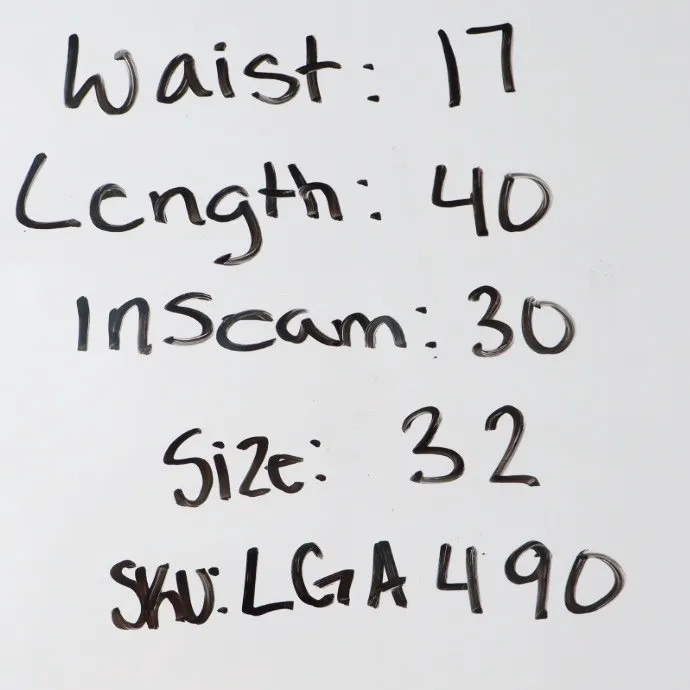 Waist: 17
Length: 40
Inseam: 30
Size: 32
SKU: LGA490